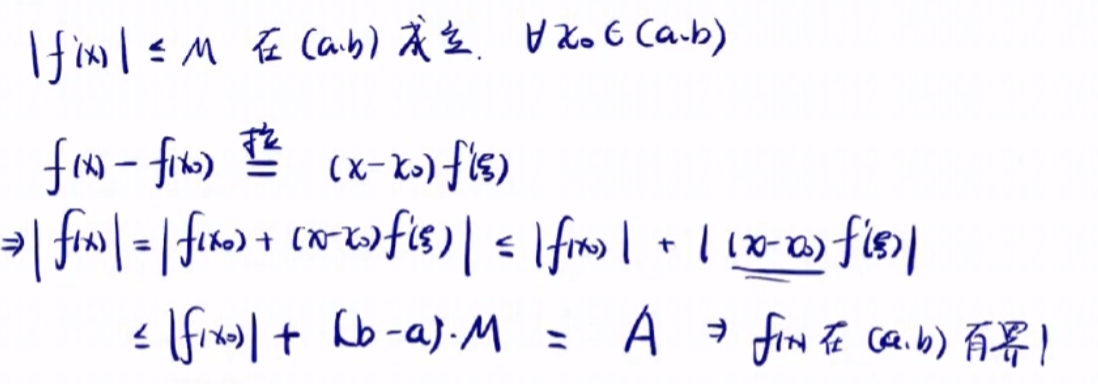 |f'(x)| ≤ M 在 (a.b) 成立. ∀x₀∈(a.b)
f(x)-f(x₀) 拉= (x-x₀)f'(ξ)
⇒|f(x)|=|f(x₀)+(x-x₀)f'(ξ)| ≤ |f(x₀)|+|(x-x₀)f'(ξ)|
≤|f(x₀)|+(b-a)·M = A ⇒ f(x)在(a.b)有界!